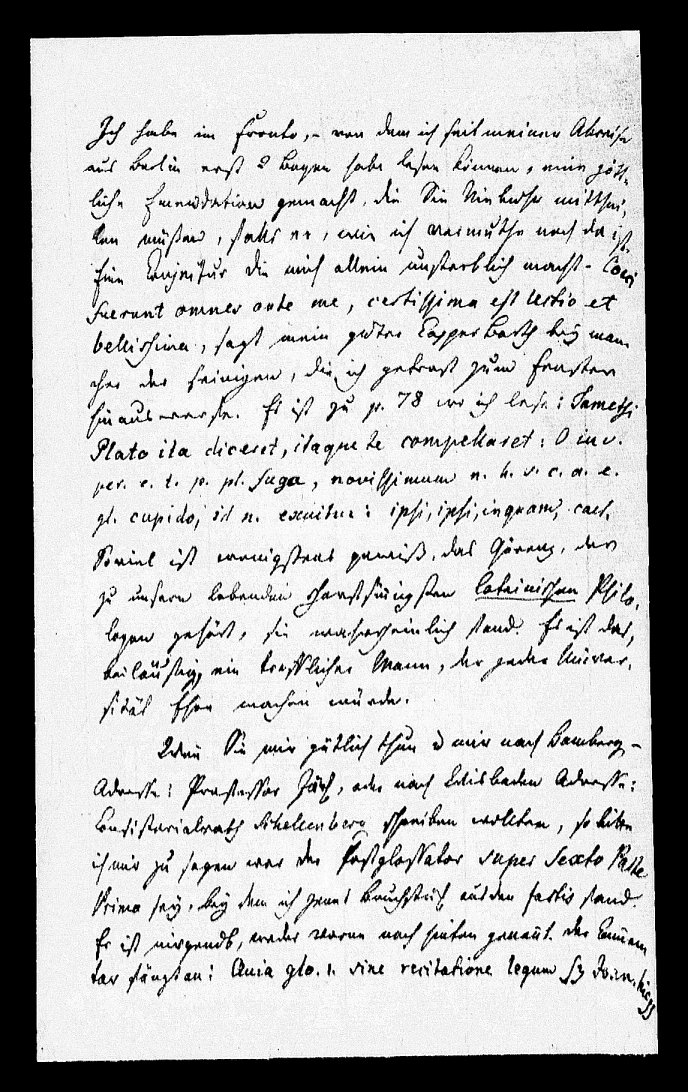 Ich habe im Fronto, – von dem ich seit meiner Abreise
aus Berlin erst 2 Bogen habe lesen können, eine gött-
liche Emendation gemacht, die Sie Niebuhr mitthei-
len müßen, falls er, wie ich vermuthe noch da ist.
Eine Conjectur die mich allein unsterblich macht – Coeci
fuerunt omnes ante me, certissima est lectio et
bellissima, sagt mein guter Casper Barth bey man-
cher der seinigen, die ich getrost zum Fenster
hinauswerfe. Es ist zu p. 78 wo ich lese: Tametsi
Plato ita diceret, itaque te compellaret: O juv.
per. e. t. p. pl. fuga, novissimum n. h. v. c. a. e.
gl. cupido, id n. exuitur: ipsi, ipsi, inquam, caet.
Soviel ist wenigstens gewiß, das Görenz, der
zu unsern lebenden scharfsinnigsten lateinischen Philo-
logen gehört, sie wahrscheinlich fand. Es ist das,
beiläufig, ein trefflicher Mann, der jeder Univer-
sität Ehre machen würde.
Wen Sie mir gütlich thun u mir nach Bamberg –
Adresse: Professor, oder nach Wisbaden Adresse:
Consistorialrath Schellenberg schreiben wollten, so bitte
ich mir zu sagen wer der Postglossator super Sexto Parte
Prima sey, bey dem ich jenes Bruchstück aus den fastis fand.
Er ist nirgends, weder vorne noch hinten genant. Der Commen
tar fängt an: Quia glo. 1. sine recitatione legum